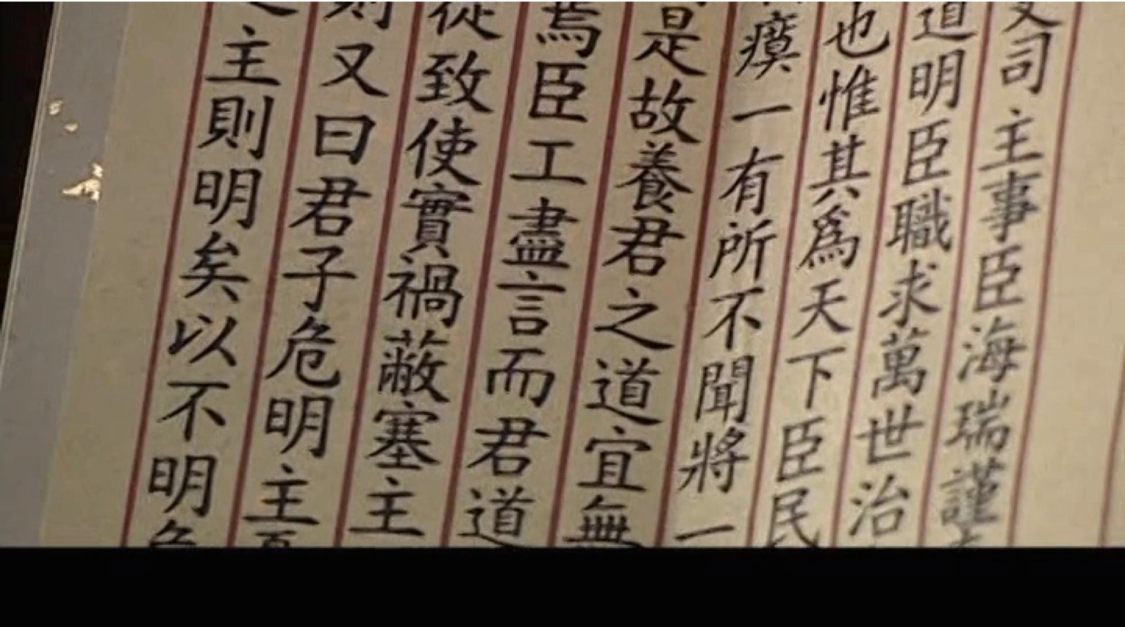 司主事臣海瑞謹
道明臣職求萬世治
也惟其爲天下臣民
瘼一有所不聞將一
是故養君之道宜無
焉臣工盡言而君道
從致使實禍蔽塞主
則又曰君子危明主
主則明矣以不明